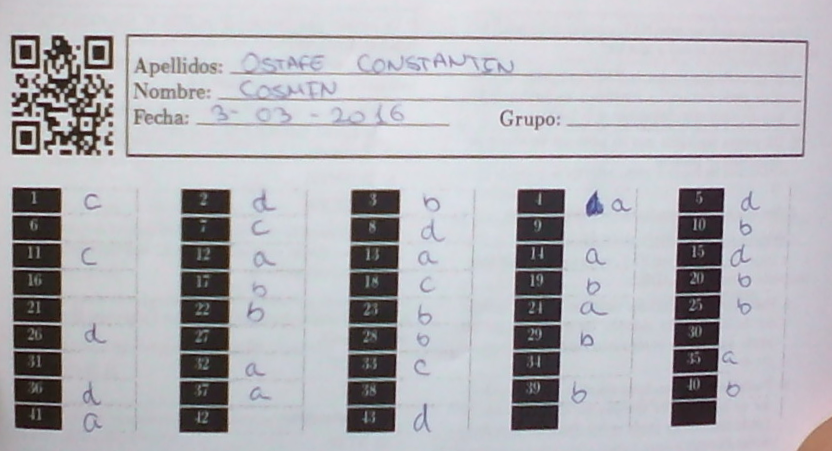 Apellidos: OSTAFE CONSTANTIN
Nombre: COSMIN
Fecha: 3-03-2016 Grupo:
1 c 2 d 3 b 4 a 5 d
6 7 c 8 d 9 10 b
11 c 12 a 13 a 14 a 15 d
16 17 b 18 c 19 b 20 b
21 22 b 23 b 24 a 25 b
26 d 27 28 b 29 b 30
31 32 a 33 c 34 35 a
36 d 37 a 38 39 b 40 b
41 a 42 43 d